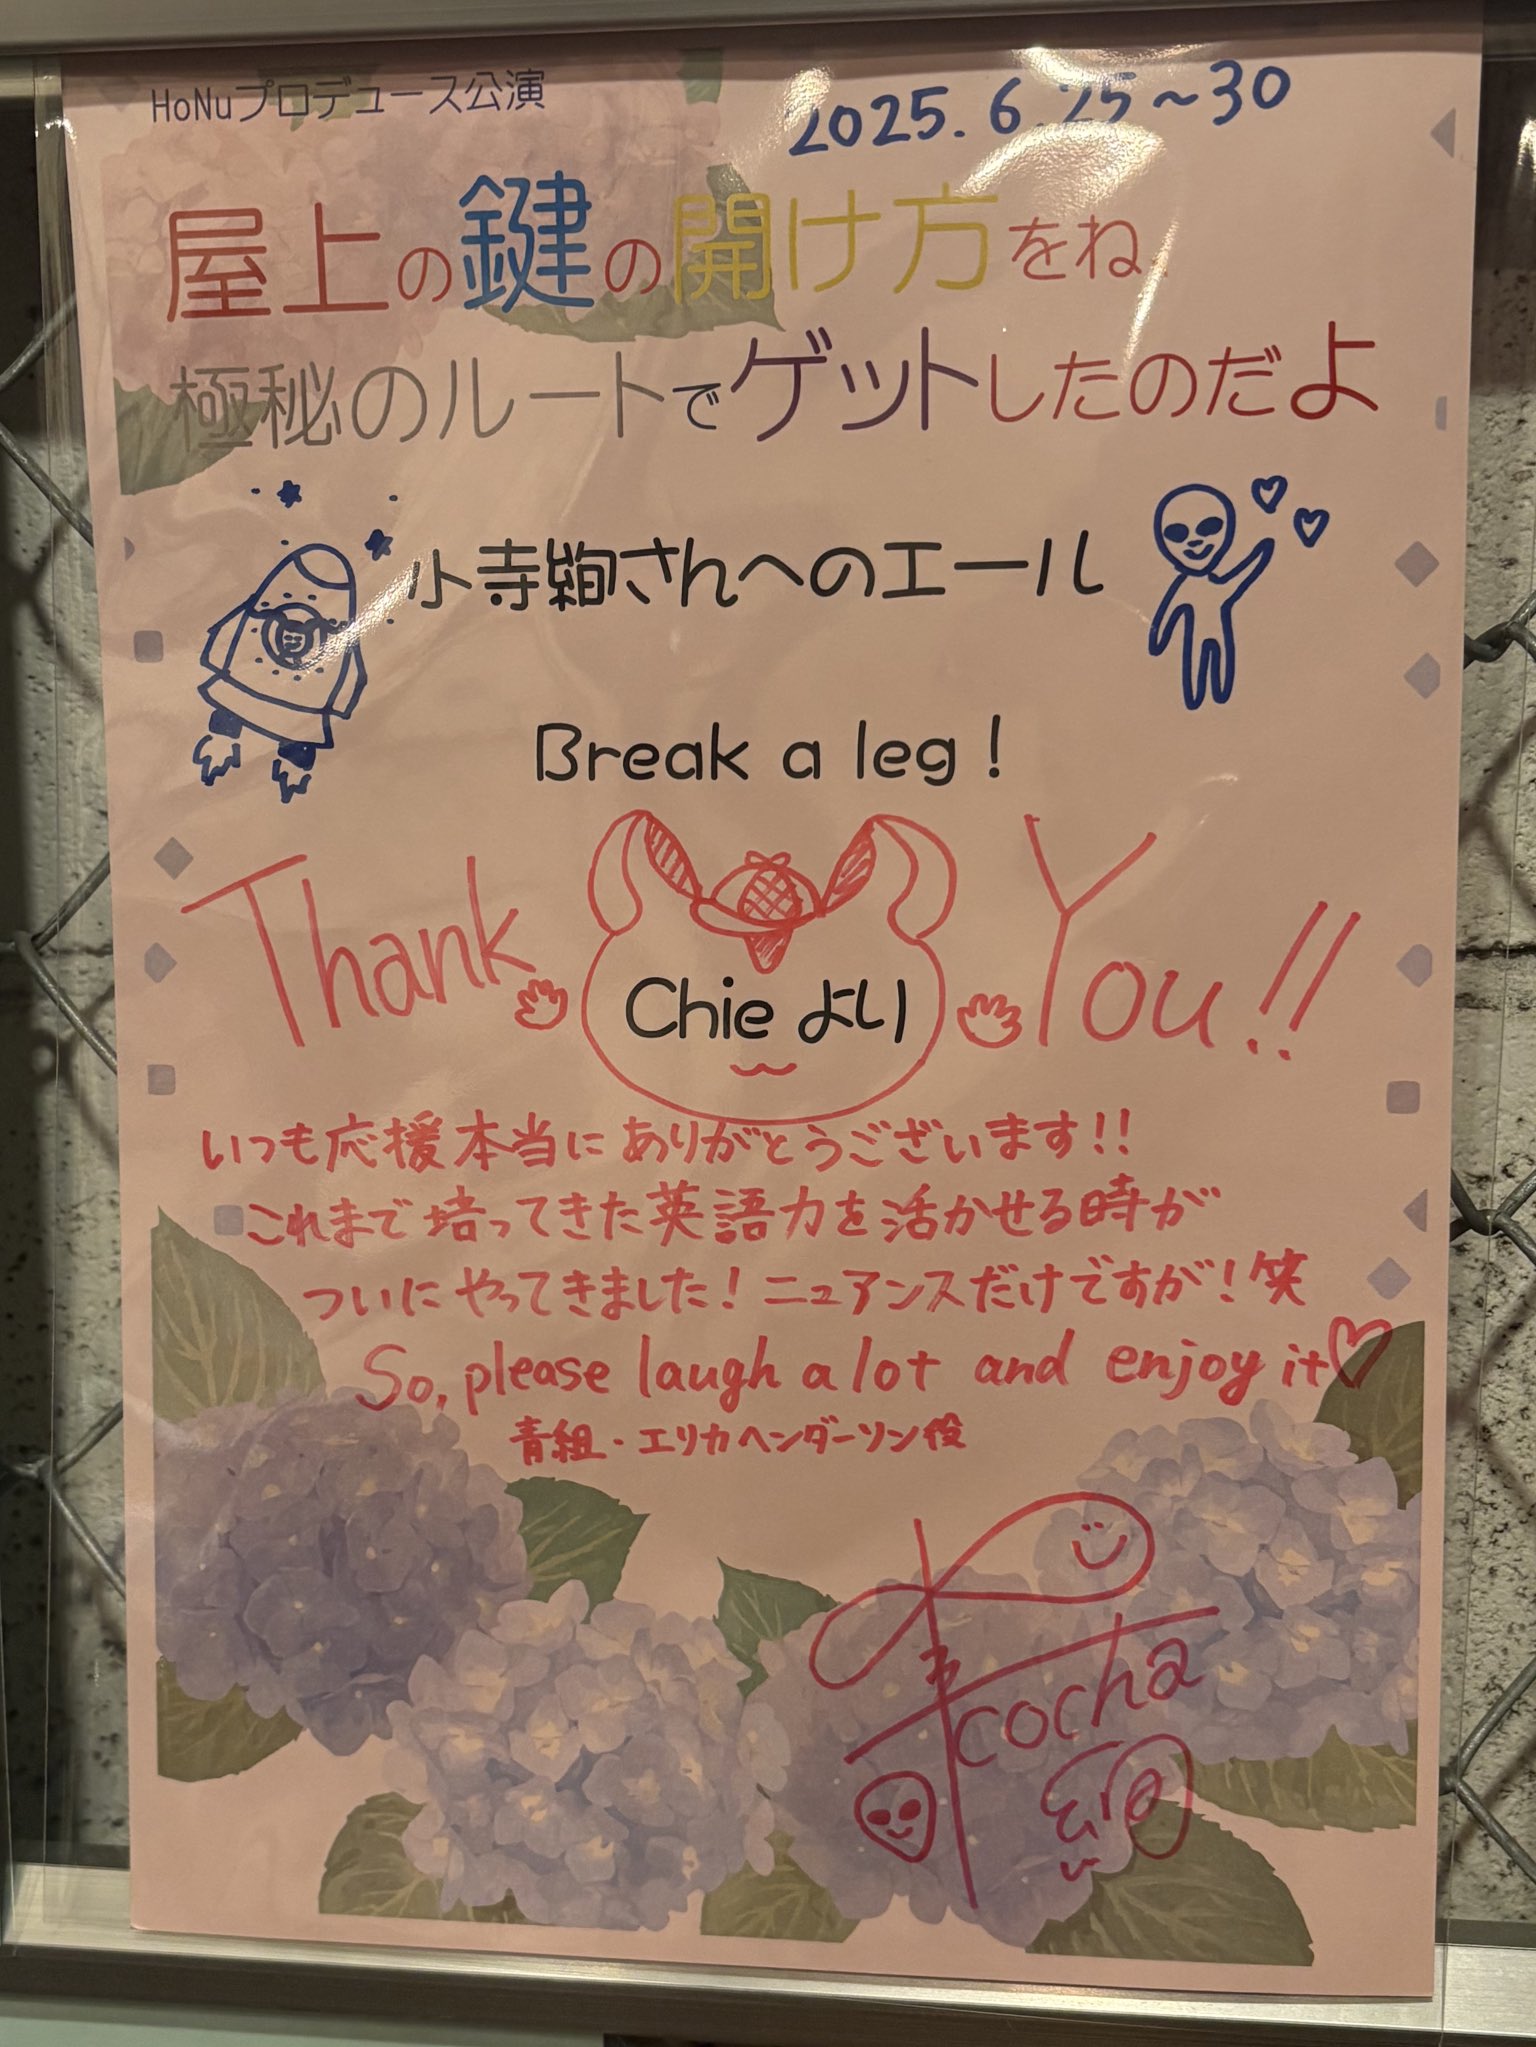 HoNuプロデュース公演
2025.6.25～30
屋上の鍵の開け方をね
極秘のルートでゲットしたのだよ
小寺絢さんへのエール
Break a leg!
Thank You!!
Chieより
いつも応援本当にありがとうございます!!
これまで培ってきた英語力を活かせる時が
ついにやってきました!ニュアンスだけですが!笑
So, please laugh a lot and enjoy it♡
青組・エリカヘンダーソン役
cocha